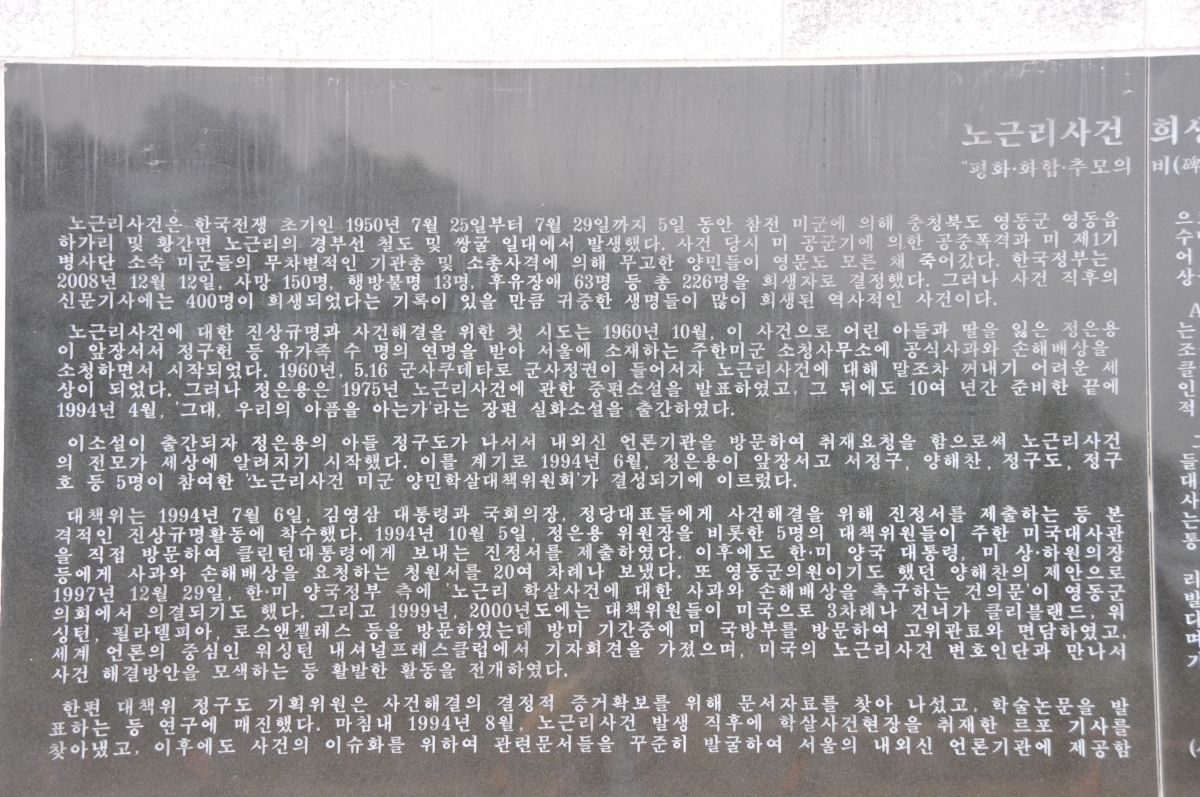 노근리사건 희생
"평화·화합·추모의 비(碑
노근리사건은 한국전쟁 초기인 1950년 7월 25일부터 7월 29일까지 5일 동안 참전 미군에 의해 충청북도 영동군 영동읍
하가리 및 황간면 노근리의 경부선 철도 및 쌍굴 일대에서 발생했다. 사건 당시 미 공군기에 의한 공중폭격과 미 제1기
병사단 소속 미군들의 무차별적인 기관총 및 소총사격에 의해 무고한 양민들이 영문도 모른 채 죽어갔다. 한국정부는
2008년 12월 12일, 사망 150명, 행방불명 13명, 후유장애 63명 등 총 226명을 희생자로 결정했다. 그러나 사건 직후의
신문기사에는 400명이 희생되었다는 기록이 있을 만큼 귀중한 생명들이 많이 희생된 역사적인 사건이다.
노근리사건에 대한 진상규명과 사건해결을 위한 첫 시도는 1960년 10월, 이 사건으로 어린 아들과 딸을 잃은 정은용
이 앞장서서 정구헌 등 유가족 수 명의 연명을 받아 서울에 소재하는 주한미군 소청사무소에 공식사과와 손해배상을
소청하면서 시작되었다. 1960년, 5.16 군사쿠데타로 군사정권이 들어서자 노근리사건에 대해 말조차 꺼내기 어려운 세
상이 되었다. 그러나 정은용은 1975년 노근리사건에 관한 중편소설을 발표하였고, 그 뒤에도 10여 년간 준비한 끝에
1994년 4월, '그대, 우리의 아픔을 아는가'라는 장편 실화소설을 출간하였다.
이소설이 출간되자 정은용의 아들 정구도가 나서서 내외신 언론기관을 방문하여 취재요청을 함으로써 노근리사건
의 전모가 세상에 알려지기 시작했다. 이를 계기로 1994년 6월, 정은용이 앞장서고 서정구, 양해찬, 정구도, 정구
호 등 5명이 참여한 '노근리사건 미군 양민학살대책위원회'가 결성되기에 이르렀다.
대책위는 1994년 7월 6일, 김영삼 대통령과 국회의장, 정당대표들에게 사건해결을 위해 진정서를 제출하는 등 본
격적인 진상규명활동에 착수했다. 1994년 10월 5일, 정은용 위원장을 비롯한 5명의 대책위원들이 주한 미국대사관
을 직접 방문하여 클린턴대통령에게 보내는 진정서를 제출하였다. 이후에도 한·미 양국 대통령, 미 상·하원의장
등에게 사과와 손해배상을 요청하는 청원서를 20여 차례나 보냈다. 또 영동군의원이기도 했던 양해찬의 제안으로
1997년 12월 29일, 한·미 양국정부 측에 '노근리 학살사건에 대한 사과와 손해배상을 촉구하는 건의문'이 영동군
의회에서 의결되기도 했다. 그리고 1999년, 2000년도에는 대책위원들이 미국으로 3차례나 건너가 클리블랜드, 워
싱턴, 필라델피아, 로스앤젤레스 등을 방문하였는데 방미 기간중에 미 국방부를 방문하여 고위관료와 면담하였고,
세계 언론의 중심인 워싱턴 내셔널프레스클럽에서 기자회견을 가졌으며, 미국의 노근리사건 변호인단과 만나서
사건 해결방안을 모색하는 등 활발한 활동을 전개하였다.
한편 대책위 정구도 기획위원은 사건해결의 결정적 증거확보를 위해 문서자료를 찾아 나섰고, 학술논문을 발
표하는 등 연구에 매진했다. 마침내 1994년 8월, 노근리사건 발생 직후에 학살사건현장을 취재한 르포 기사를
찾아냈고, 이후에도 사건의 이슈화를 위하여 관련문서들을 꾸준히 발굴하여 서울의 내외신 언론기관에 제공함